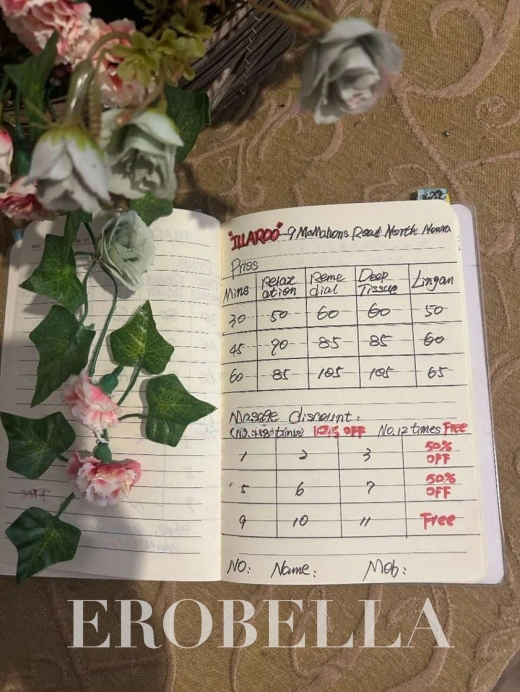 "ILLAROO" 9 McMahons Road North Nowra
Priss
Mins Relaxation Remedial Deep Tissue Lingan
30 50 60 60 50
45 70 85 85 60
60 85 105 105 65
Massage discount:
times 10% OFF No.12 times Free
1 2 3 50% OFF
5 6 7 50% OFF
9 10 11 Free
No: Name: Mob:
EROBELLA